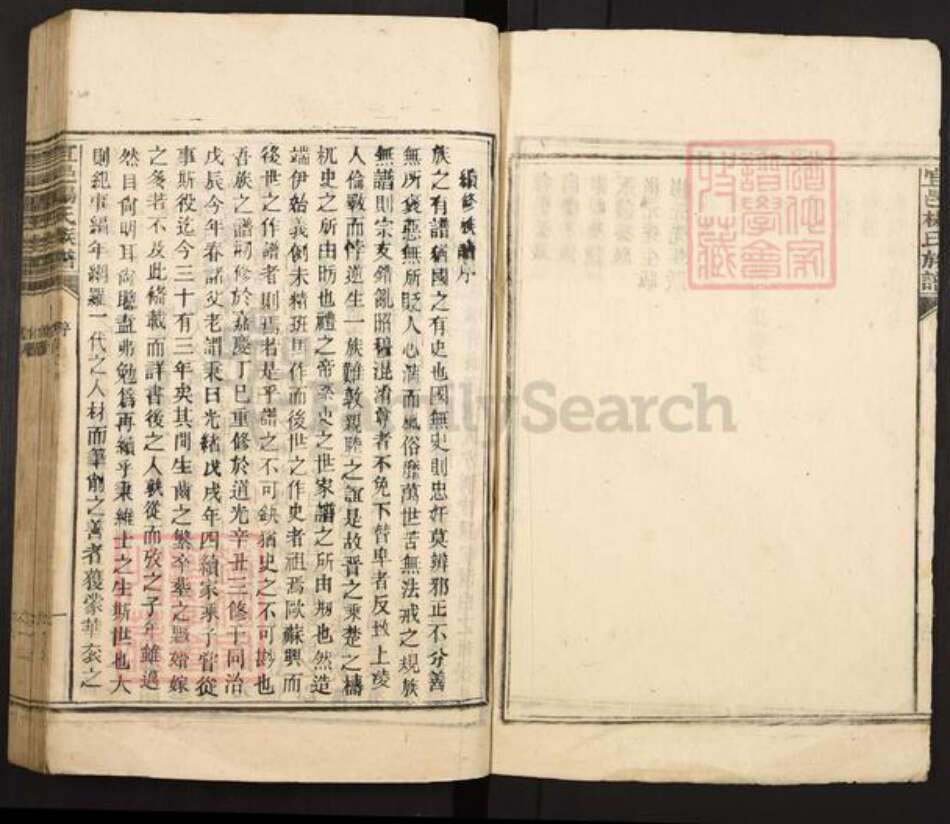 宜邑楊氏族譜
續修族譜序
族之有譜猶國之有史也國無史則忠奸莫辨邪正不分善
無所褒惡無所貶人心漓而風俗靡萬世苦無法戒之規族
無譜則宗支錯亂昭穆混淆尊者不免下替卑者反致上凌
人倫斁而悖逆生一族難敦親睦之誼是故晋之乘楚之檮
杌史之所由昉也禮之帝系史之世家譜之所由刱也然造
端伊始義例未精班馬作而後世之作史者祖焉歐蘇興而
後世之作譜者則焉若是乎譜之不可缺猶史之不可尠也
吾族之譜刱修於嘉慶丁巳重修於道光辛丑三修于同治
戊辰今年春諸父老謂秉曰光緒戊戌年四續家乘子嘗從
事斯役迄今三十有三年矣其間生齒之繁卒塟之 婚嫁
之多若不及此脩載而詳書後之人孰從而攷之子年雖邁
然目尚明耳尚聰盍弗勉爲再續乎秉維士之生斯世也大
則紀事編年網羅一代之人材而筆削之善者獲榮華衮之
宜邑楊氏族譜
FamilySearch